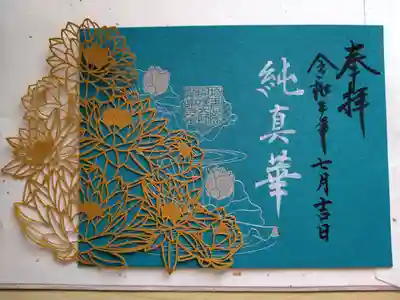 奉拝
令和三年 七月吉日
純真華